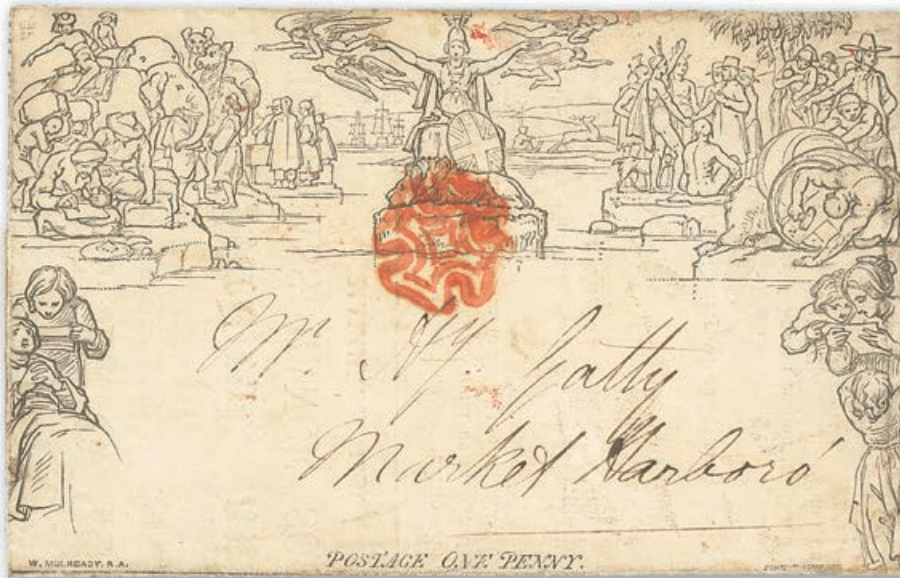 Mr. Hy. Gatty
Market Harboro'
W. MULREADY. R.A.
POSTAGE ONE PENNY.